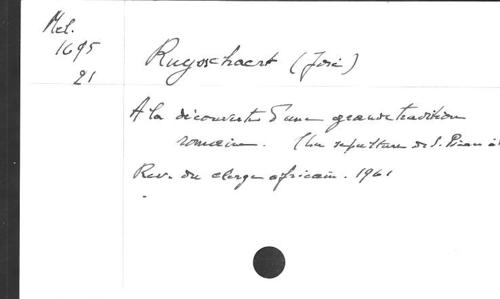 Mel.
1695
21
Ruysschaert (José)
A la découverte d'une grande tradition
romaine. (La sépulture de S. Pierre à
Rev. du clergé africain. 1961